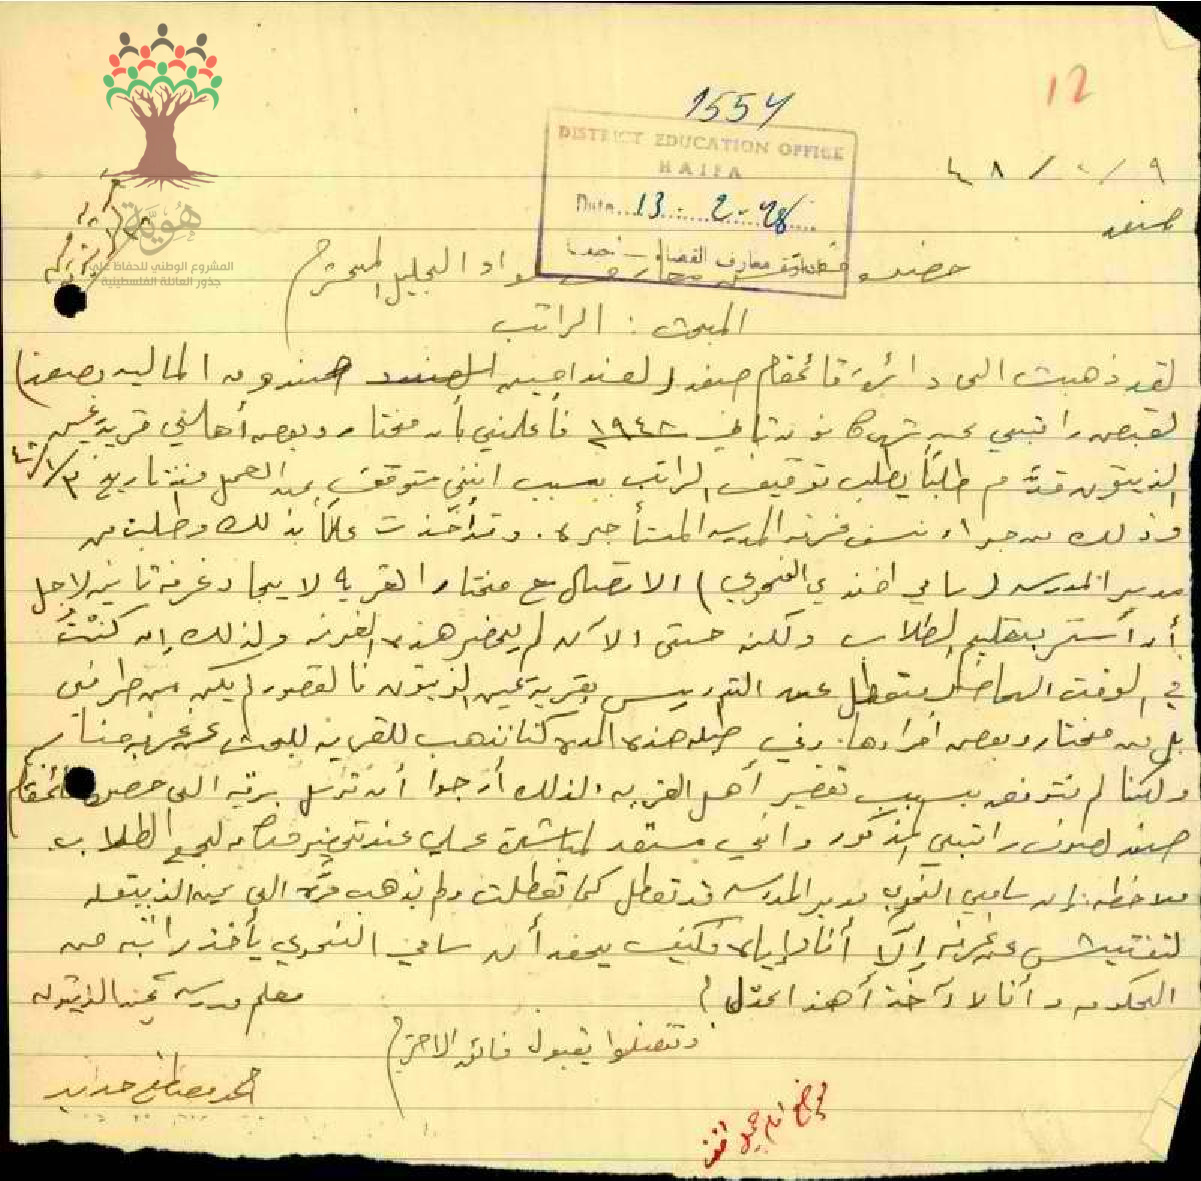 12
1554
DISTRICT EDUCATION OFFICE
HAIFA
Date 13-2-48
٩ / ٢ / ٤٨
صفد
هُوِيَّة
المشروع الوطني للحفاظ على
جذور العائلة الفلسطينية
حضرة مفتش معارف لواء الجليل المحترم
المبحث : الراتب
لقد ذهبت الى دائرة قائمقام صفد ( لعند امين صندوق المالية بصفد )
لقبض راتبي عن شهر كانون ثاني ١٩٤٨ فأعلمني بأن مختار وبعض أهالي قرية عين
الزيتون قدم طلباً يطلب توقيف الراتب بسبب انني متوقف عن العمل منذ تاريخ
وذلك من جراء نسف غرفة المدرسة المستأجرة . وقد أخذت علماً بذلك وطلبت من
مدير المدرسة ( سامي افندي النحوي ) الاتصال مع مختار القرية لايجاد غرفة ثانية لاجل
أن أستمر بتعليم الطلاب ولكن حتى الآن لم يحضر هذه الغرفة ولذلك إن كنت
في الوقت الحاضر متعطل عن التدريس بقرية عين الزيتون فالقصور لم يكن من طرفي
بل من مختار وبعض أفرادها . وفي طيلة هذه المدة كنا نذهب للقرية للبحث عن غرفة
ولكنا لم نتوفق بسبب تقصير أهل القرية . لذلك أرجوا أن ترسل برقية الى حضرة قائمقام
صفد لصرف راتبي المذكور وانني مستعد لمباشرة عملي عند تحضير مكان لجمع الطلاب
ملاحظة : إن سامي النحوي مدير المدرسة قد تعطل كما تعطلت ولم يذهب مرة الى عين الزيتون
لتفتيش عن غرفة إلّا أنا وإياه فكيف أن سامي النحوي يأخذ راتبه من
الحكومة وأنا لا آخذ أهذا عدل ؟
معلم مدرسة عين الزيتون
وتفضلوا بقبول فائق الاحترام
محمد مصطفى